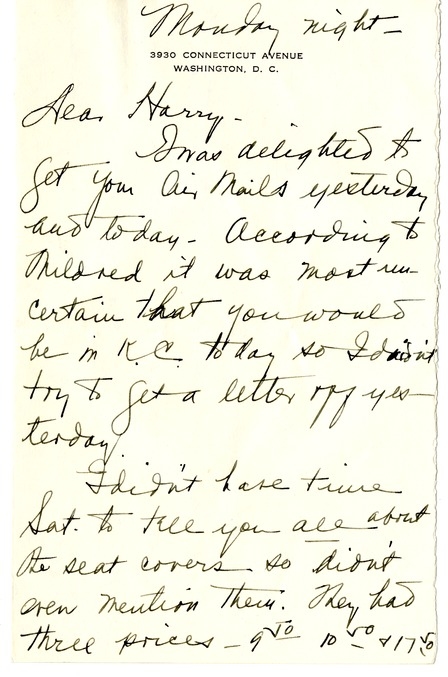 Monday night-
3930 CONNECTICUT AVENUE
WASHINGTON, D. C.
Dear Harry-
I was delighted to
get your Air Mails yesterday
and today- According to
Mildred it was most un-
certain that you would
be in K.C. today so I didn't
try to get a letter off yes-
terday.
I didn't have time
Sat. to tell you all about
the seat covers so didn't
even mention them. They had
three prices - 9 50 10 50 - & 17 50